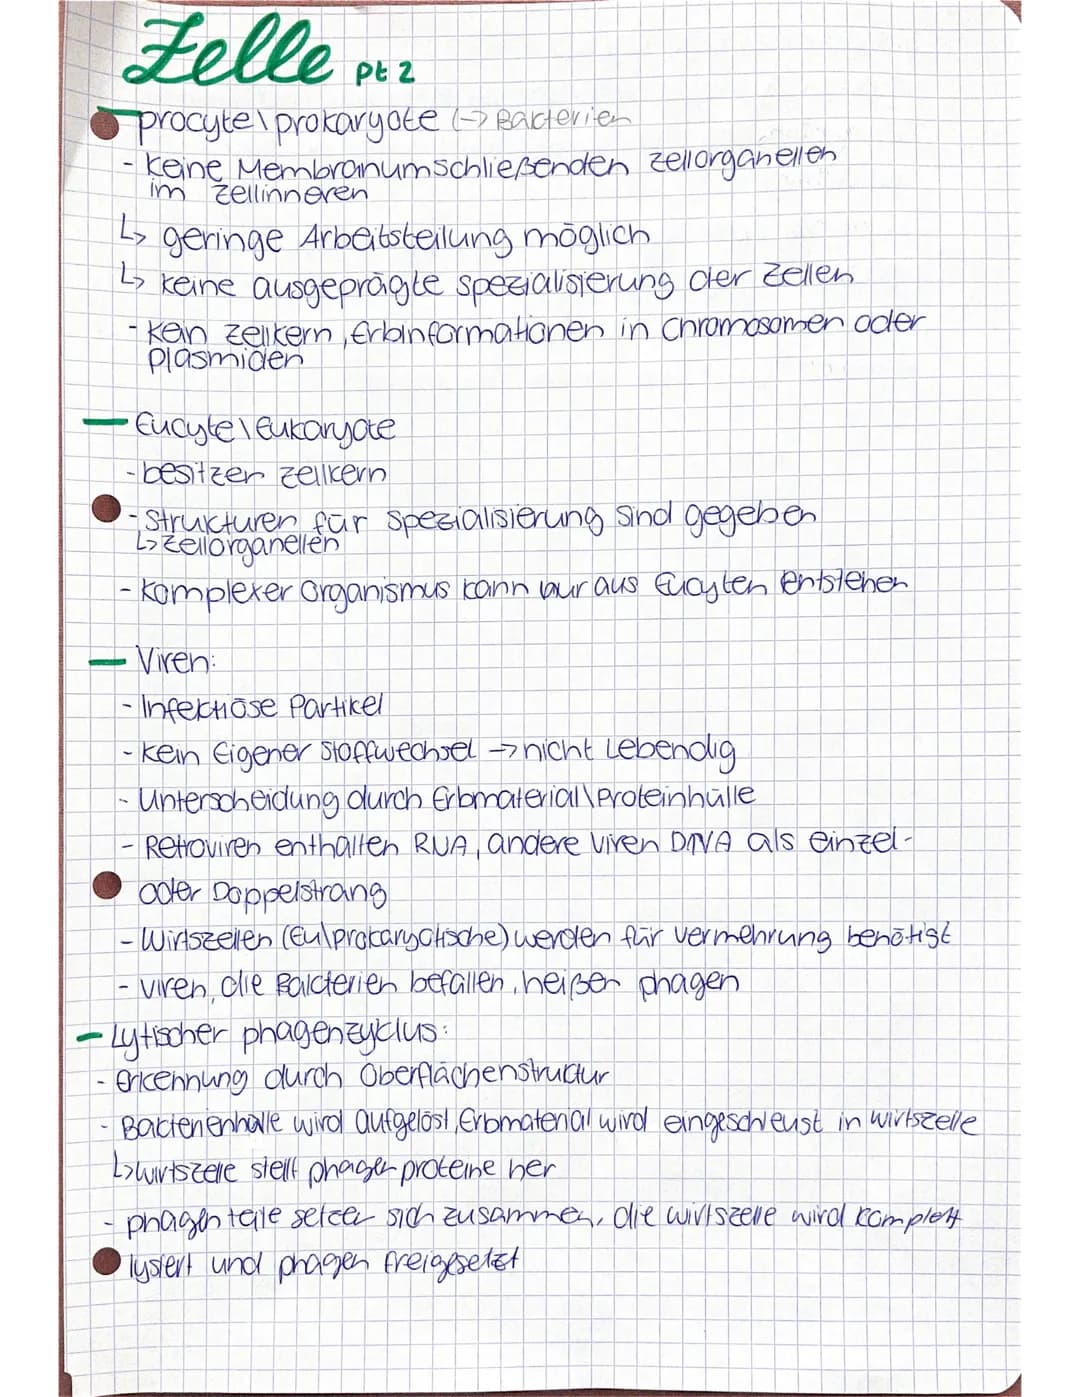 Zelle pt 2
procyte\prokaryote (-> Bakterien
- keine Membranumschließenden zellorganellen
im zellinneren
↳ geringe Arbeitsteilung möglich
↳ keine ausgeprägte spezialisierung der Zellen
- kein zellkern, Erbinformationen in Chromosomen oder
plasmiden
Eucyte\Eukaryote
- besitzen zellkern
- Strukturen für spezialisierung sind gegeben
↳ zellorganellen
- komplexer Organismus kann nur aus Eucyten entstehen
Viren:
- Infektiöse Partikel
- kein Eigener Stoffwechsel → nicht Lebendig
- Unterscheidung durch Erbmaterial\Proteinhülle
- Retroviren enthalten RNA, andere Viren DNA als einzel-
oder Doppelstrang
- Wirtszellen (Eu\prokaryotische) werden für vermehrung benötigt
- viren, die Bakterien befallen, heißen phagen
Lytischer phagenzyklus:
- erkennung durch Oberflächenstruktur
- Bakterienhülle wird aufgelöst, Erbmaterial wird eingeschleust in wirtszelle
↳ wirtszelle stellt phagenproteine her
- phagenteile setzen sich zusammen, die wirtszelle wird komplett
lysiert und phagen freigesetzt